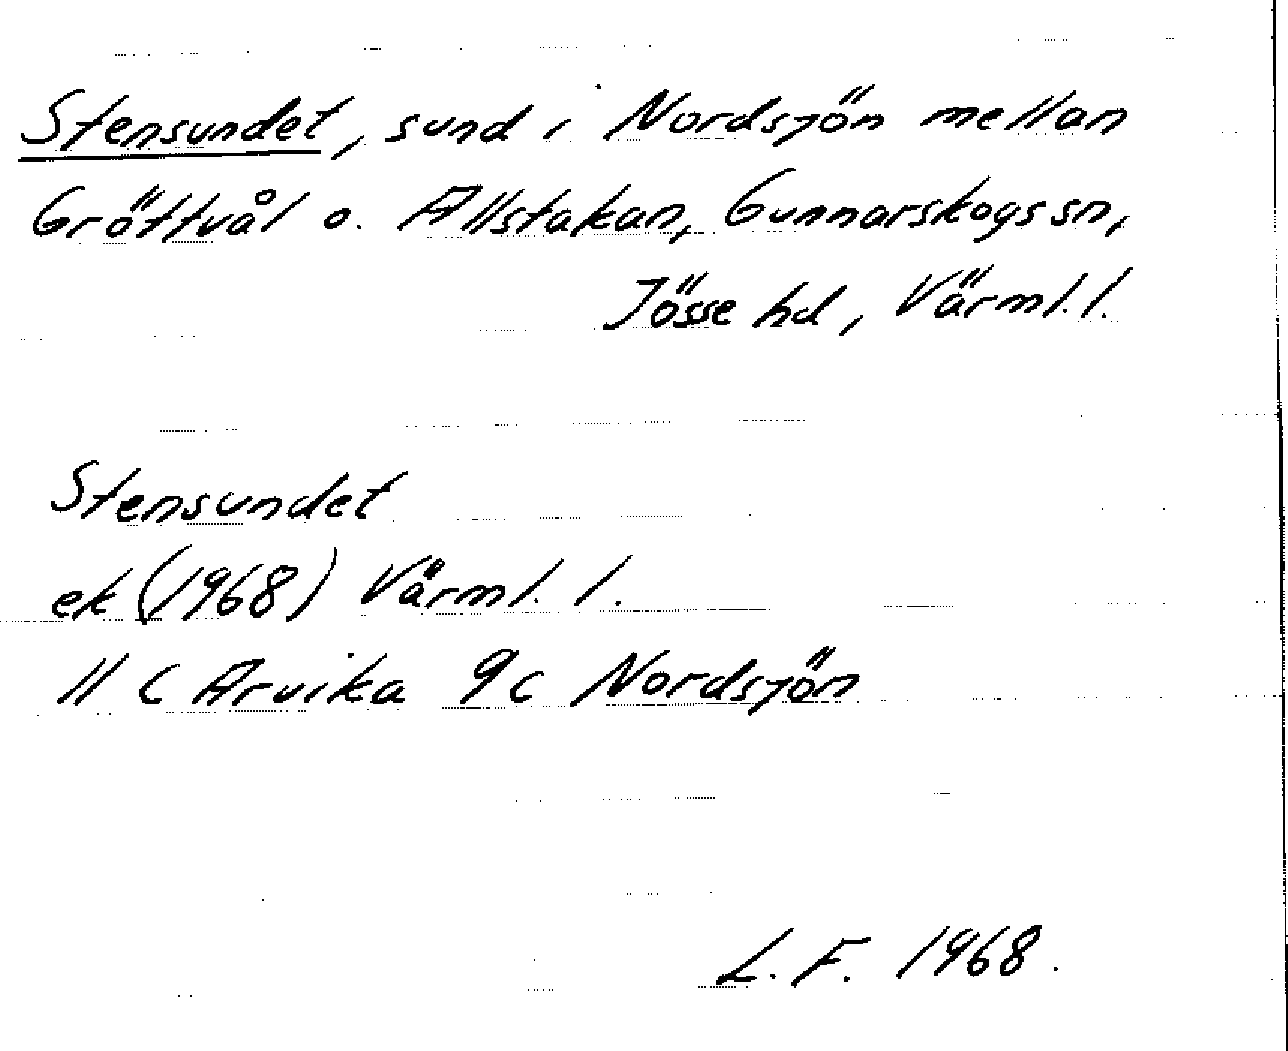 Stensundet, sund i Nordsjön mellan
Gröttvål o. Allstakan, Gunnarskogs sn,
Jösse hd, Värml. l.
Stensundet
ek (1968) Värml. l.
11 C Arvika 9c Nordsjön
L. F. 1968.